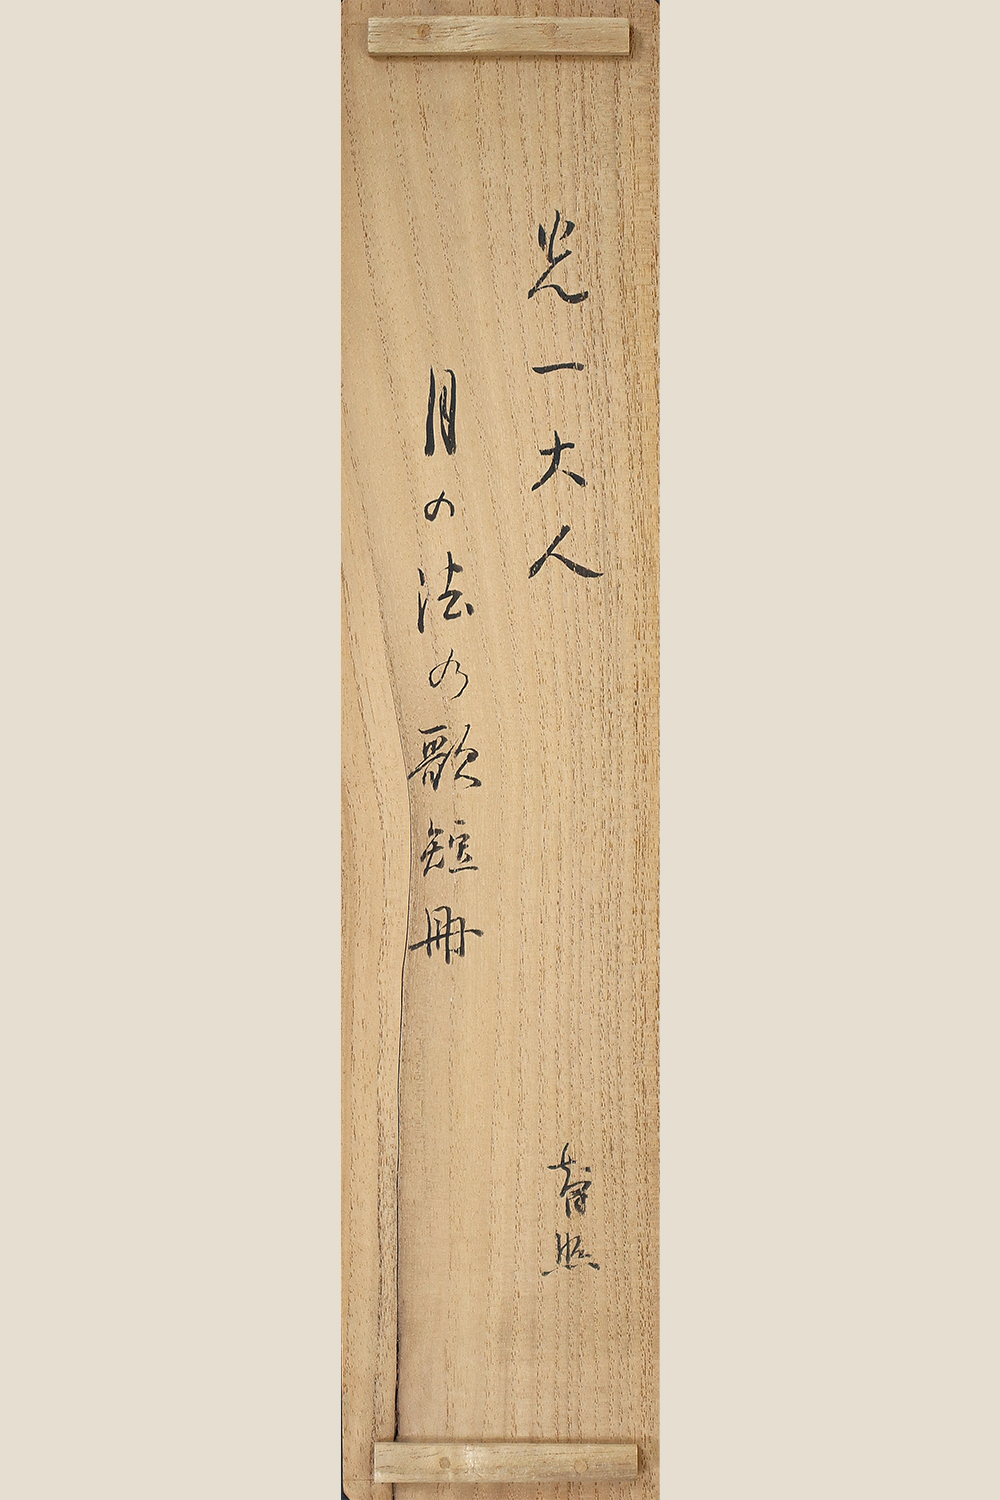 光一大人
月の法の歌短冊